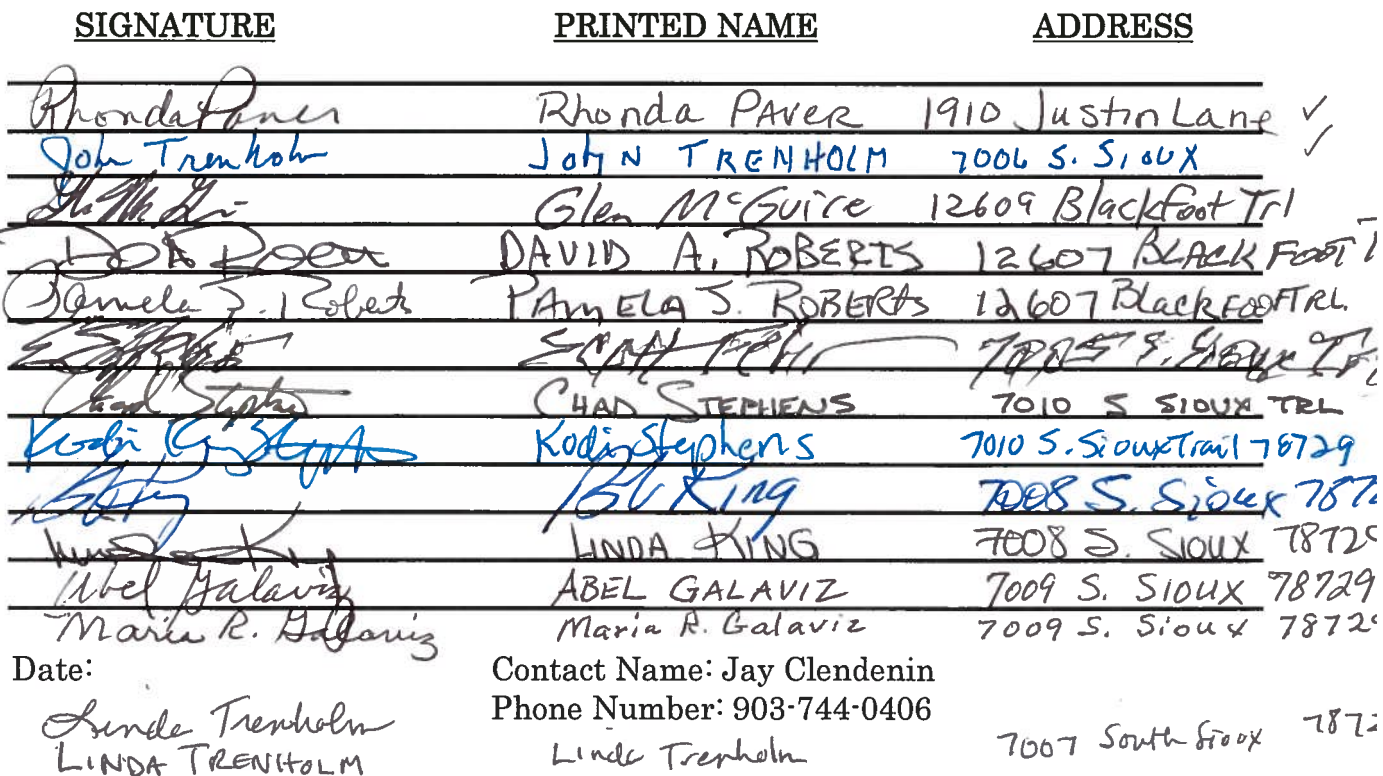 SIGNATURE PRINTED NAME ADDRESS
Rhonda Paver Rhonda PAVER 1910 Justin Lane ✓
John Trenholm JohN TRENHOLM 7006 S. SIOUX ✓
Glen McGuire 12609 Blackfoot Trl
DAVID A. ROBERTS 12607 BLACK FOOT T
Pamela S. Roberts PAmELA S. ROBERts 12607 BlackFOOT TRL.
7005 S. Sioux
Chad Stephens CHAD STEPHENS 7010 S SIOUX TRL
Kodi Stephens 7010 S. Sioux Trail 78729
King 7008 S. Sioux 7872
LINDA KING 7008 S. SIOUX 78729
Abel Galaviz ABEL GALAVIZ 7009 S. SIOUX 78729
Maria R. Galaviz Maria R. Galaviz 7009 S. Sioux 78729
Date: Contact Name: Jay Clendenin
Phone Number: 903-744-0406
Linda Trenholm 7007 South Sioux 7872
LINDA TRENHOLM Linda Trenholm